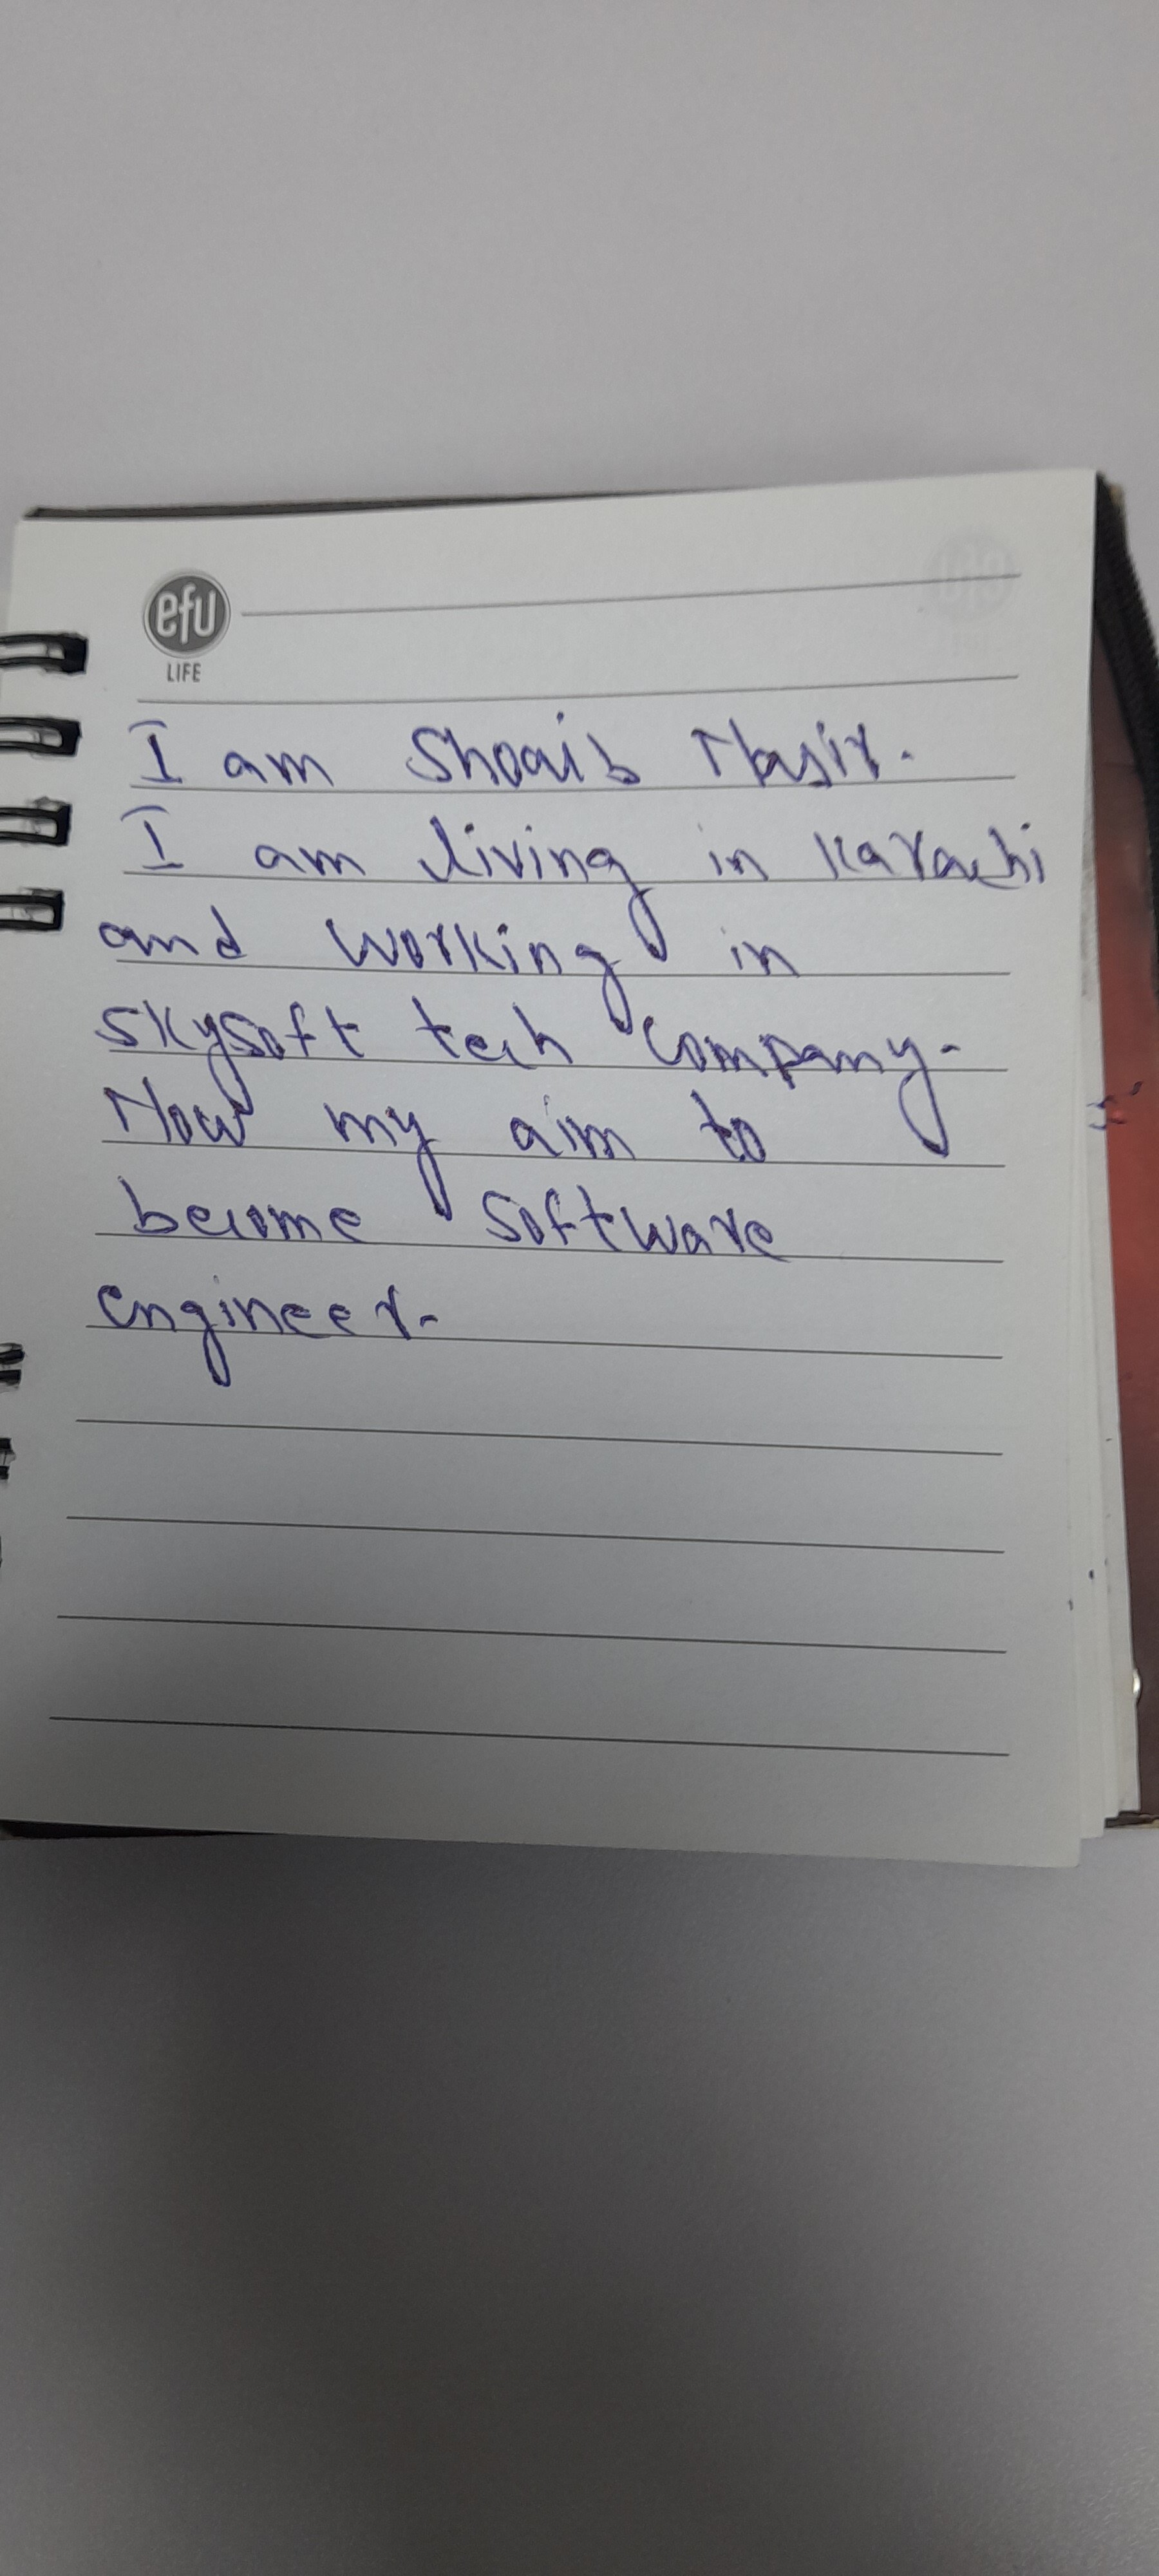 efu
LIFE
I am Shoaib Nasir.
I am living in Karachi
and working in
skysoft tech company.
Now my aim to
become software
engineer.